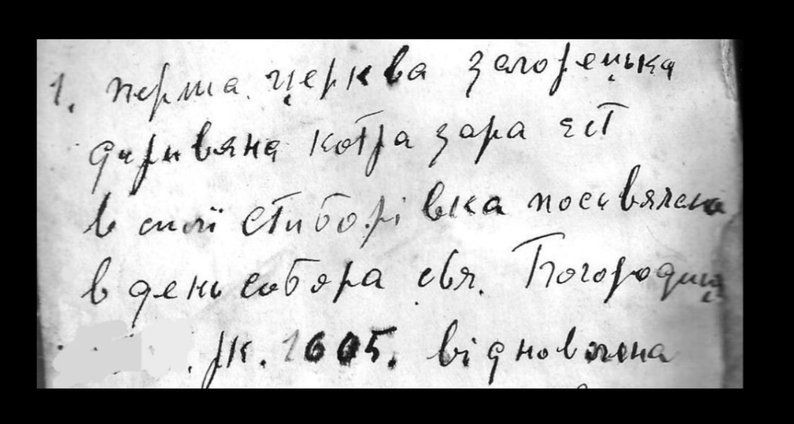 1. перша церква загорецька
диривяна котра зара єст
в силі Стиборівка посьвячена
в день собора свя. Богородици
рк. 1605. відновлена